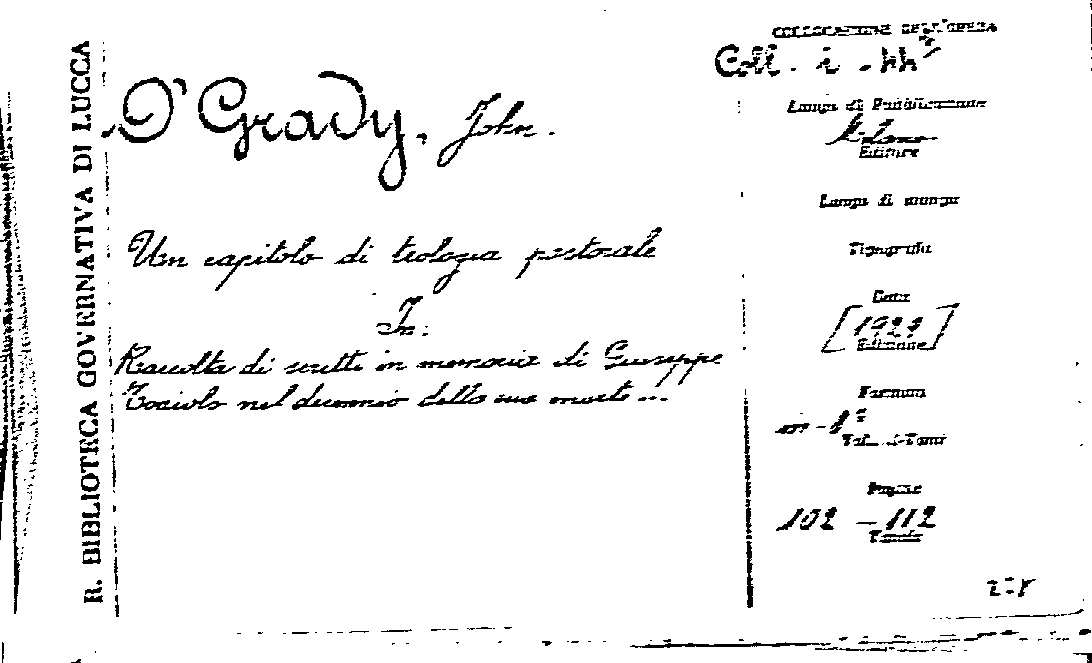 R. BIBLIOTECA GOVERNATIVA DI LUCCA
O'Grady, John.
Un capitolo di teologia pastorale
In:
Raccolta di scritti in memoria di Giuseppe
Toniolo nel decennio della sua morte...
COLLOCAZIONE DELL'OPERA
Coll. i
Luogo di Pubblicazione
Milano
Editore
Luogo di stampa
Tipografia
Data
[1929]
Edizione
Formato
in-8°
Vol. o Tomi
Pagine
102 - 112
Tavole